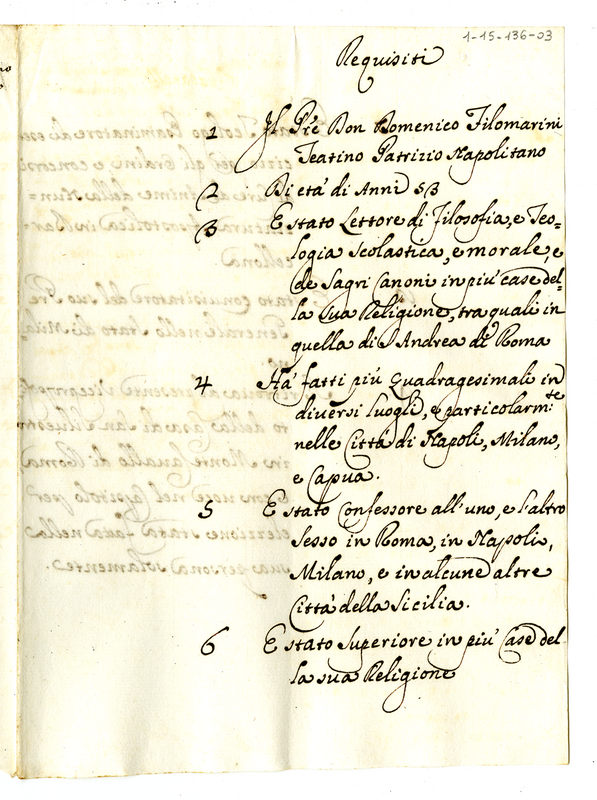 1-15-136-03
Requisiti
1 Il Pré Don Domenico Filomarini
Teatino Patrizio Napolitano
2 Di etá di Anni 53
3 E stato Lettore di Filosofia, e Teo=
logia scolastica, e morale, e
de Sagri Canoni in piú case del=
la sua Religione, tra quali in
quella di S Andrea di Roma
4 Há fatti piú Quadragesimali in
diversi luogli, e particolarm:te
nelle Cittá di Napoli, Milano,
e Capua.
5 E stato Confessore all'uno, e l'altro
sesso in Roma, in Napoli,
Milano, e in alcune altre
Cittá della Sicilia.
6 E stato Superiore in piú Case del
la sua Religione